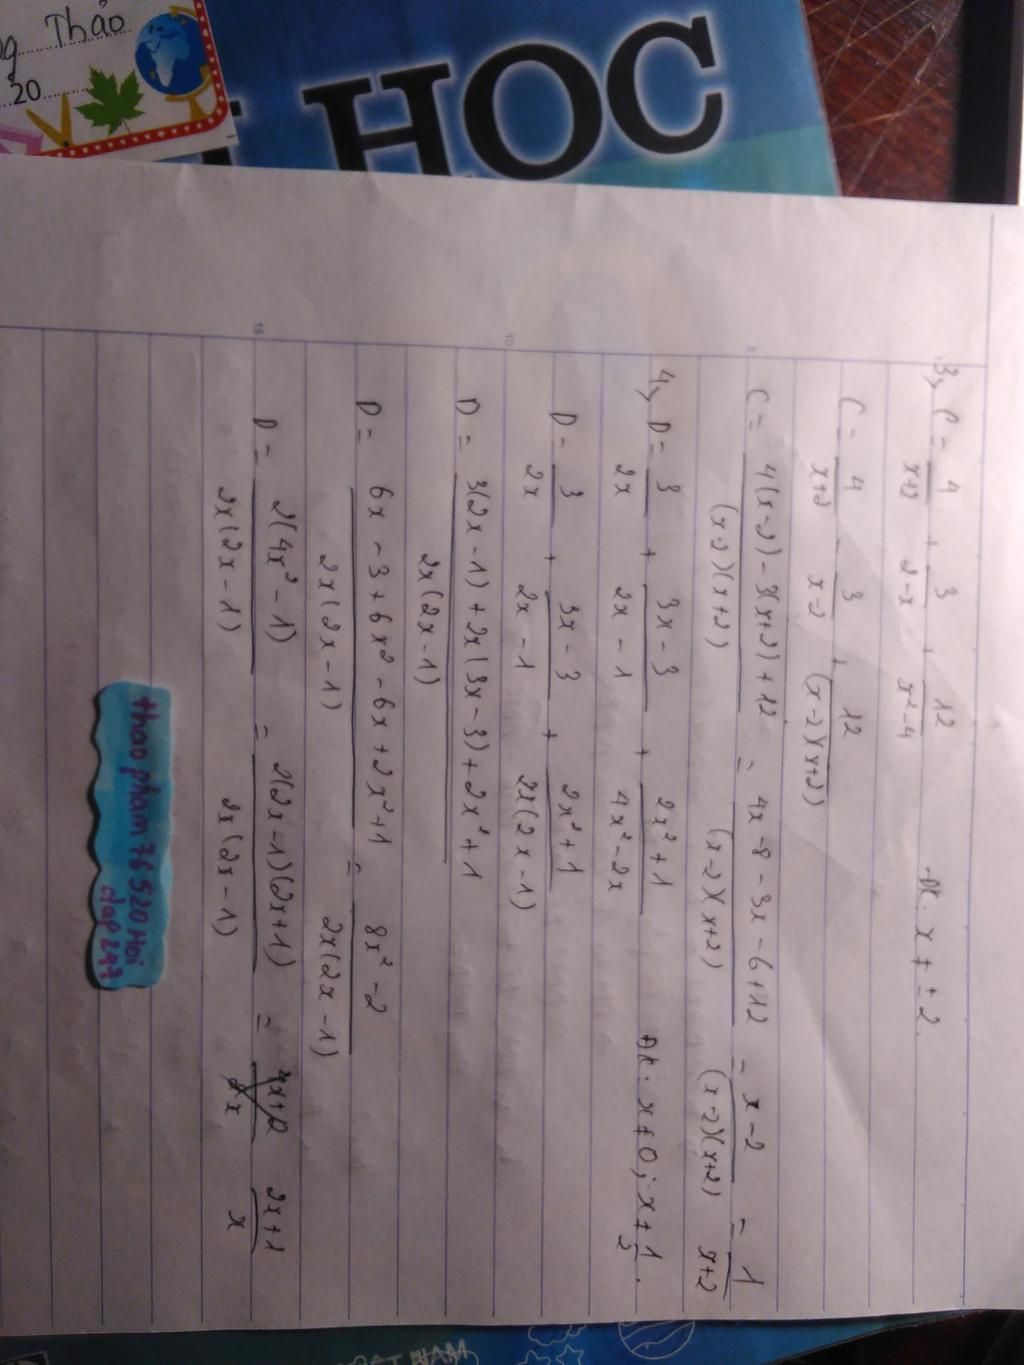 ng Thảo
20
HOC
3, C = 4/(x+2) + 3/(2-x) + 12/(x²-4) ĐK: x ≠ ±2.
C = 4/(x+2) - 3/(x-2) + 12/((x-2)(x+2))
5
C = (4(x-2) - 3(x+2) + 12)/((x-2)(x+2)) = (4x - 8 - 3x - 6 + 12)/((x-2)(x+2)) = (x-2)/((x-2)(x+2)) = 1/(x+2)
4, D = 3/(2x) + (3x-3)/(2x-1) + (2x²+1)/(4x²-2x) ĐK: x ≠ 0; x ≠ 1/2.
D = 3/(2x) + (3x-3)/(2x-1) + (2x²+1)/(2x(2x-1))
10
D = (3(2x-1) + 2x(3x-3) + 2x²+1)/(2x(2x-1))
D = (6x - 3 + 6x² - 6x + 2x²+1)/(2x(2x-1)) = (8x²-2)/(2x(2x-1))
15
D = (2(4x²-1))/(2x(2x-1)) = (2(2x-1)(2x+1))/(2x(2x-1)) = (2x+1)/x
thao pham 76520 Hoi
dap 247